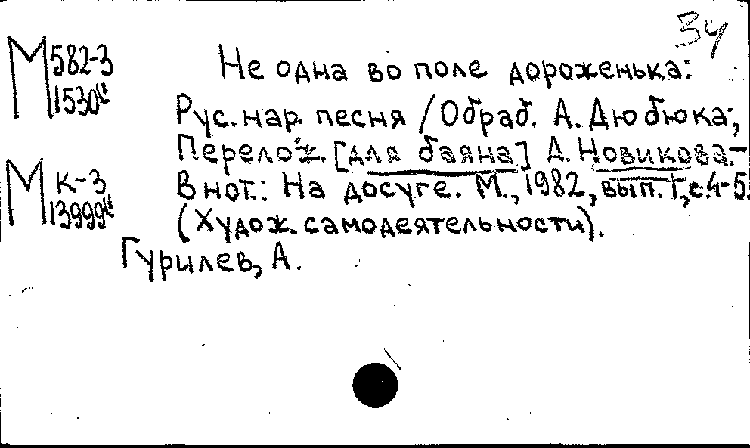 34
М 582-3
1530и
Не одна во поле дороженька:
Рус. нар. песня / Обраб. А. Дюбюка;
Перелож. [для баяна] А. Новикова.–
М К-3
13999и
В нот.: На досуге. М., 1982, вып. 1, с. 4-5.
(Худож. самодеятельности).
Гурилев, А.